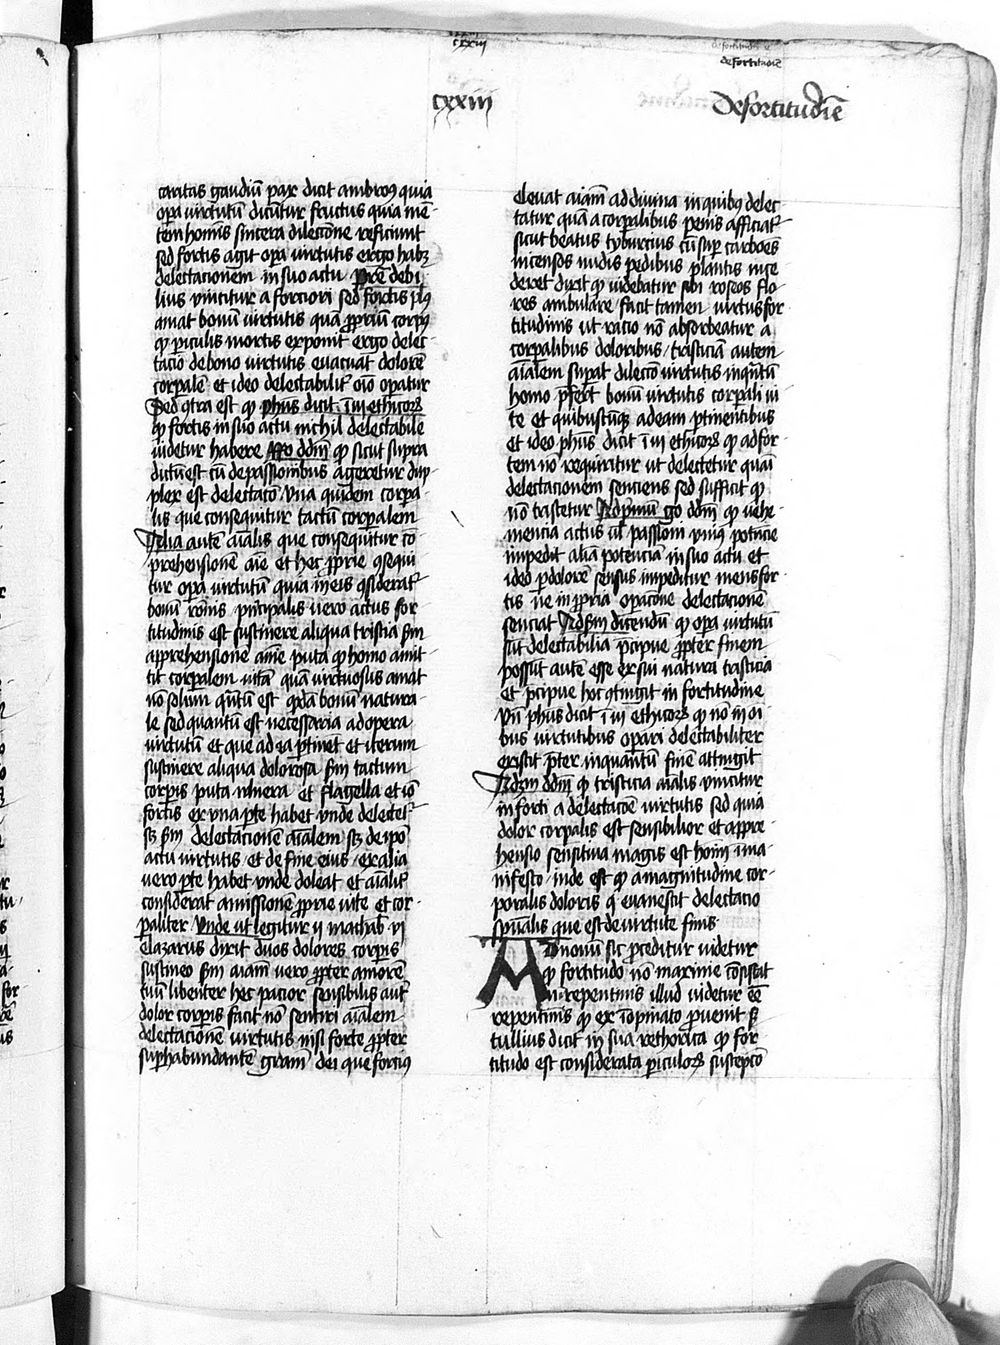 cxxiii
de fortitudīe
cxxiii
De fortitudīe
caritas gaudiū pax dicit ambroꝯ quia
opa virtutū dicūtur fructus quia mē-
tem hominis sincera dilectione reficiunt
sed fortis agit opa virtutis ergo habꝫ
delectationem in suo actu Pretē debi
lius vincitur a fortiori sed fortis plꝯ
amat bonū virtutis quā ꝓpriū corpꝯ
qꝫ piculis mortis exponit ergo delec-
tatio de bono virtutis evacuat dolorē
corpalē et ideo delectabilit̄ oīo opatur
Sed ꝯtra est qꝫ phūs dicit ī iii ethicoꝝ
qꝫ fortis in suo actu nichil delectabile
videtur habere Rño ddm̄ qꝫ sicut supra
dictū est cū de passionibus ageretur dup
plex est delectatō vna quidem corpa-
lis que consequitur tactū corpalem
Alia autē aīalis que consequitur cō
prehensionē aīe et hec ꝓprie ꝯsequi
tur opa virtutū quia in eis ꝯsiderat̄
bonū rōnis pncipalis vero actus for
titudinis est sustinere aliqua tristia s̄m
apprehensionē aīe puta qꝫ homo amit-
tit corpalem vitā quā virtuosus amat
nō solum quātū est qdā bonū natura-
le sed quantū est necessaria ad opera
virtutū et que ad ea ptinēt et iterum
sustinere aliqua dolorosa s̄m tactum
corpis puta vulnera et flagella et iō
fortis ex vna pte habet vnde delectet̄
sꝫ s̄m delectationē aīalem sꝫ de ipō
actu virtutis et de fine eius ex alia
vero pte habet vnde doleat et aīalit̄
considerat amissionē ꝓprie vite et cor-
paliter Vnde vt legitur ii machab vi
elazarus dixit duos dolores corpis
sustineo s̄m aīam vero ꝓpter amorē
tuū libenter hec patior sensibilis aut̄
dolor corpis facit nō sentiri aīalem
delectationē virtutis nisi forte ꝓpter
suphabundantē grām dei que fortiꝯ
elevat aīam ad divina in quibꝯ delec-
tatur quā a corpalibus penis afficiat̄
sicut beatus tyburcius cū sup carbōes
incensos nudis pedibus plantis ince
deret dixit qꝫ videbatur sibi roseos flo-
res ambulare facit tamen virtus for
titudinis vt ratio nō absorbeatur a
corpalibus doloribus tristiciā autem
aīalem supat dilectō virtutis inqūtū
homo pfert bonū virtutis corpali vi
te et quibuscūqꝫ ad eam ptinentibus
et ideo phūs dicit ī iii ethicoꝝ qꝫ ad for-
tem nō requiritur vt delectetur quasi
delectationem senciens sed sufficit qꝫ
nō tristetur Ad pmū ḡo ddm̄ qꝫ vehe-
mencia actus vl̄ passiōnī vniꝯ potēcie
impedit aliā potencia in suo actu et
ideo p dolorē sensus impeditur mens for-
tis ne in ꝓpria opatōne delectationē
senciat Ad s̄m dicendū qꝫ opa virtutū
sūt delectabilia pcipue ꝓpter finem
possūt autē esse ex sui natura tristicia
et pcipue hoc ꝯtingit in fortitudine
Vn̄ phūs dicit ī iii ethicoꝝ qꝫ nō in oī
bus virtutibus opari delectabiliter
existit pter inquantū finē attingit
Ad 3m ddm̄ qꝫ tristicia aīalis vincitur
in forti a delectacōe virtutis sed quia
dolor corpalis est sensibilior et appre-
hensio sensitiva magis est homī ī ma-
nifesto inde est qꝫ a magnitudine cor-
poralis doloris q̄ evanescit delectatio
spūalis que est de virtute finis
Ad nonū sic pceditur videtur
qꝫ fortitudo nō maxime cōsistat
in repentinis illud videtur eē
repentinis qꝫ ex īopinato pvenit s̄
tullius dicit in sua rethorica qꝫ for
titudo est considerata piculoꝝ susceptō